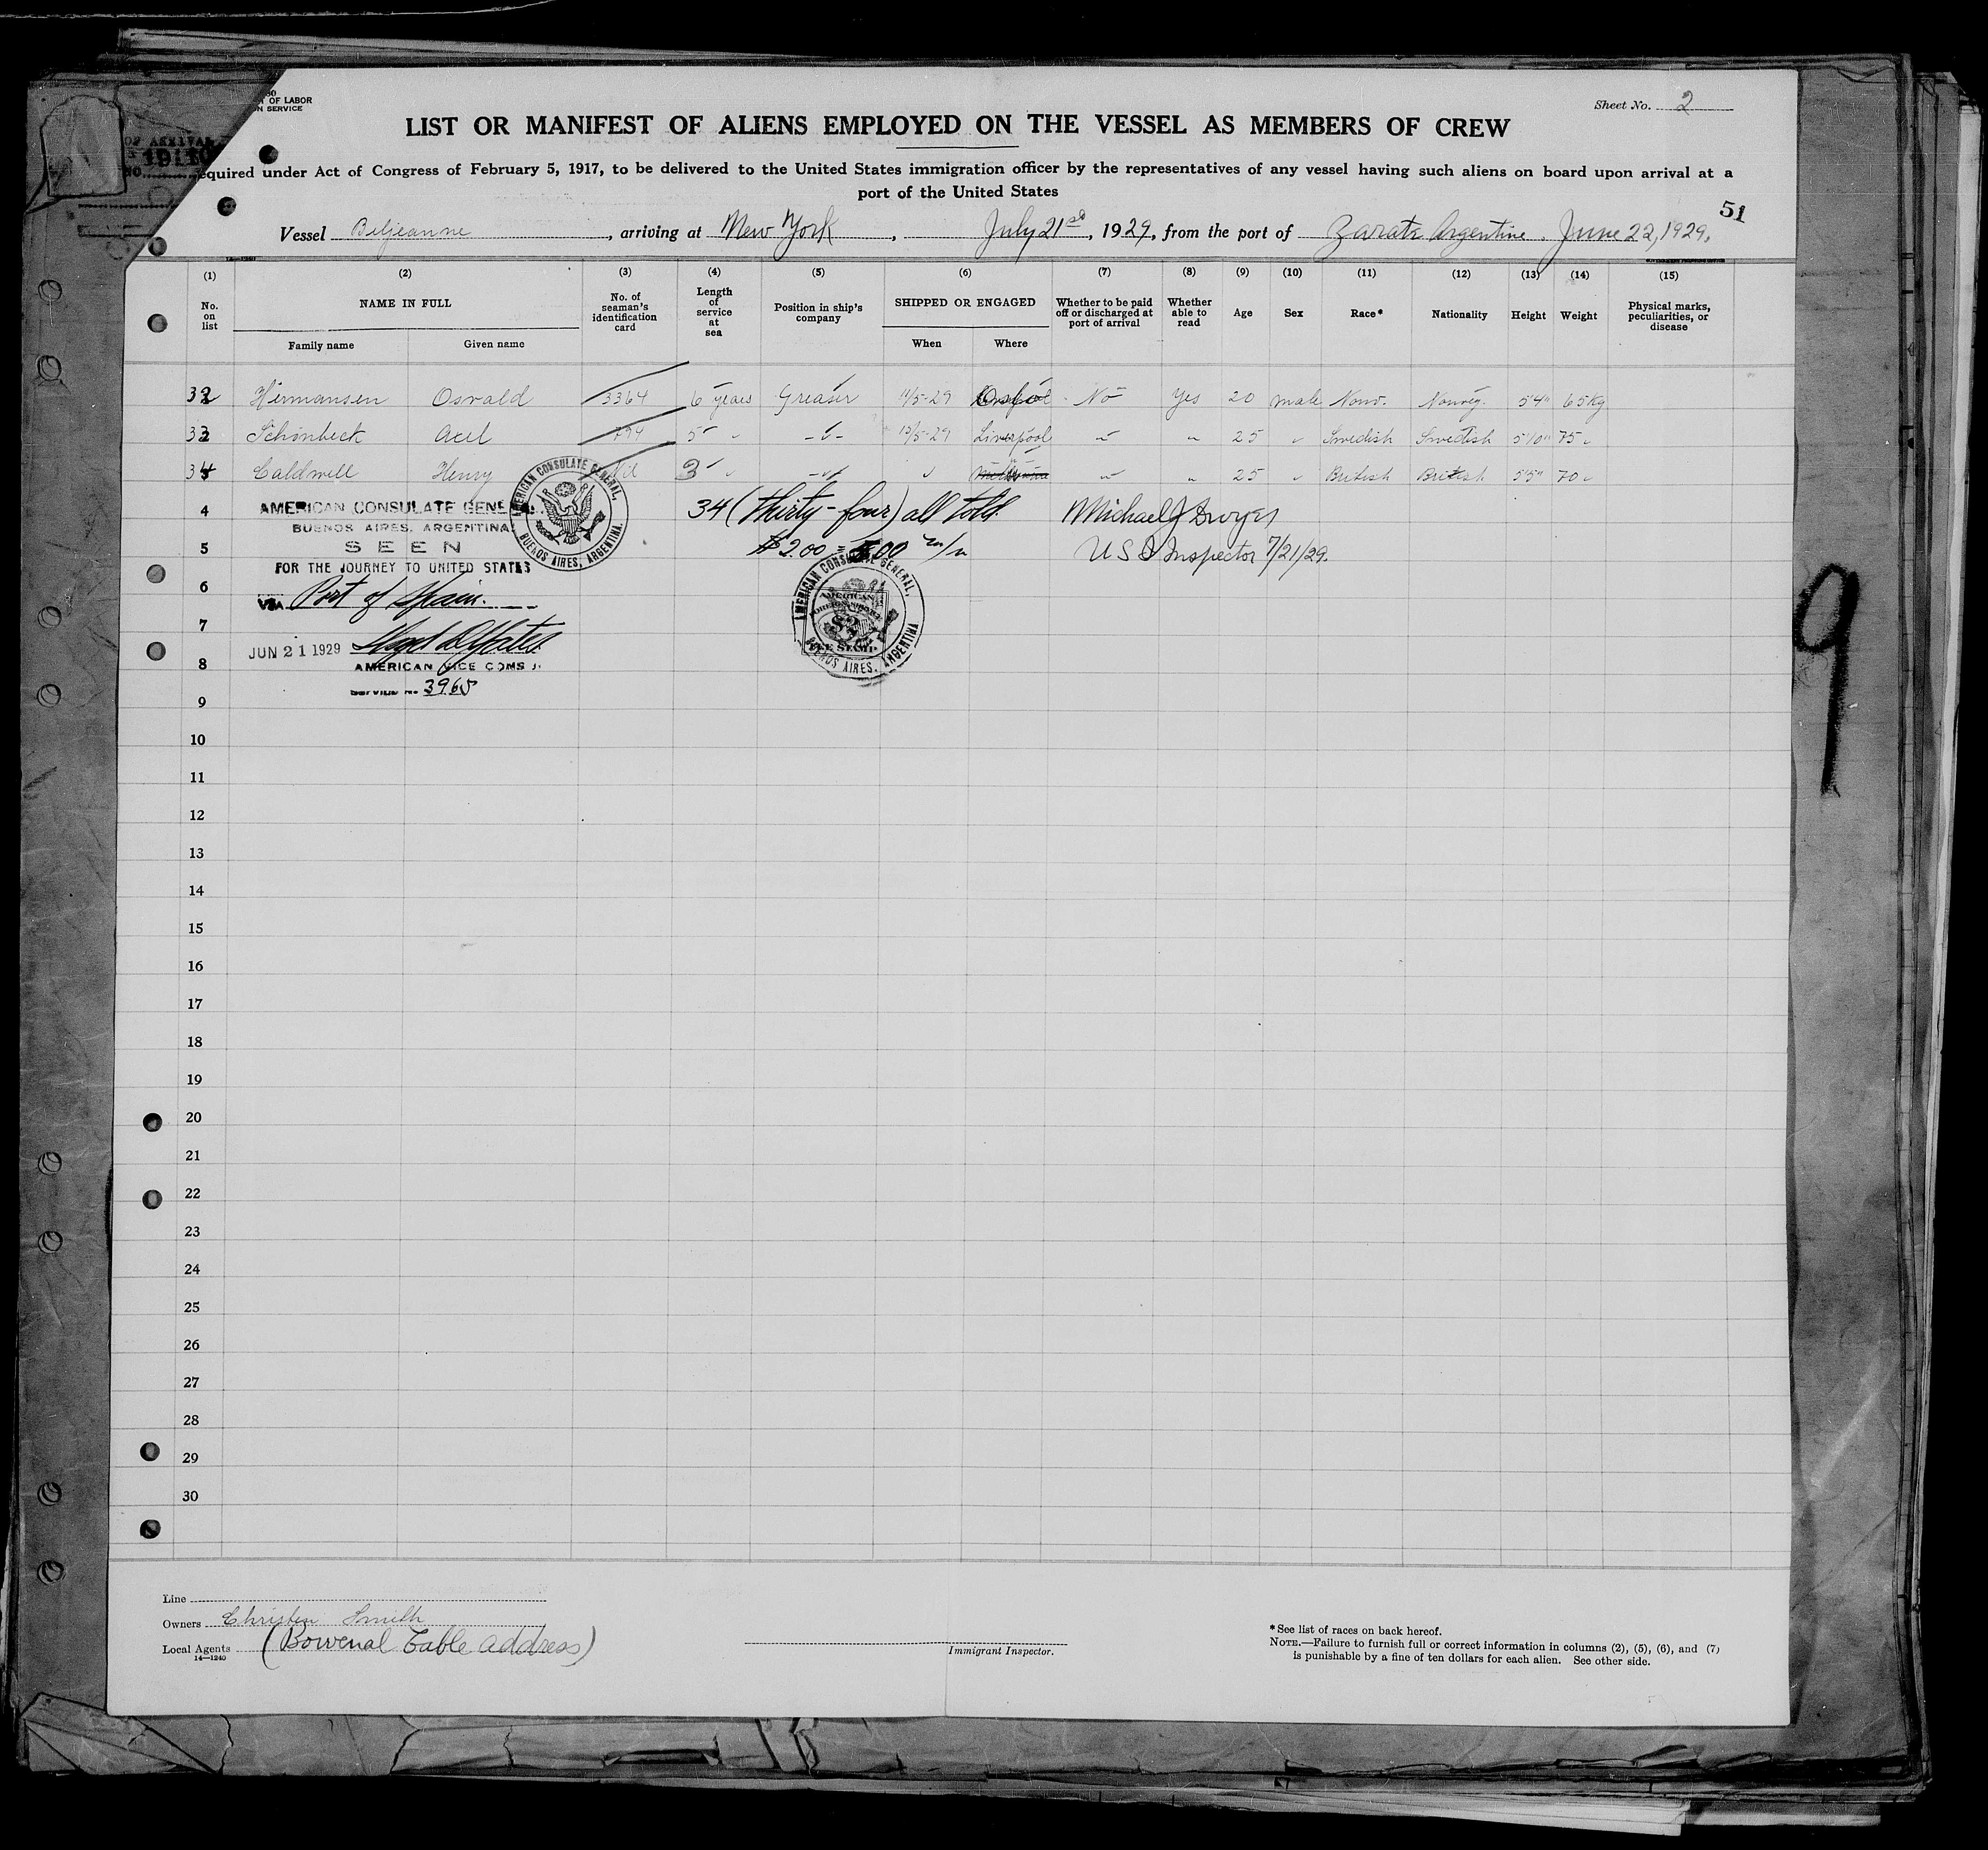 OF LABOR
SERVICE
Sheet No. 2
LIST OR MANIFEST OF ALIENS EMPLOYED ON THE VESSEL AS MEMBERS OF CREW
equired under Act of Congress of February 5, 1917, to be delivered to the United States immigration officer by the representatives of any vessel having such aliens on board upon arrival at a
port of the United States
51
Vessel Beljeanne, arriving at New York, July 21st, 1929, from the port of Zarate Argentine. June 22, 1929.
(1) (2) (3) (4) (5) (6) (7) (8) (9) (10) (11) (12) (13) (14) (15)
No. on list NAME IN FULL Family name Given name No. of seaman's identification card Length of service at sea Position in ship's company SHIPPED OR ENGAGED When Where Whether to be paid off or discharged at port of arrival Whether able to read Age Sex Race* Nationality Height Weight Physical marks, peculiarities, or disease
32 Hermansen Osvald 3364 6 years Greaser 11/5-29 No Yes 20 male Norw. Norweg. 5'4" 65 Kg
33 Schönbeck Acel 5 " Liverpool " " 25 " Swedish Swedish 5'10" 75 "
34 Caldwell Henry Nil 3 " " " " 25 " British British 5'5" 70 "
4 AMERICAN CONSULATE GENE 34 (thirty-four) all told. Michael J Dwyer
BUENOS AIRES, ARGENTINA
5 SEEN $2.00 = m/n U S I Inspector 7/21/29.
FOR THE JOURNEY TO UNITED STATES
AMERICAN CONSULATE GENERAL, BUENOS AIRES, ARGENTINA.
6 VIA Port of Spain.
AMERICAN CONSULATE GENERAL, BUENOS AIRES, ARGENTINA
AMERICAN
$2
FEE STAMP
7
JUN 21 1929
8 AMERICAN VICE CONSU
Service No. 3965
9
10
11
12
13
14
15
16
17
18
19
20
21
22
23
24
25
26
27
28
29
30
9
Line
Owners Christen Smith
Local Agents (Bowenal Cable address)
14—1240
Immigrant Inspector.
*See list of races on back hereof.
NOTE.—Failure to furnish full or correct information in columns (2), (5), (6), and (7)
is punishable by a fine of ten dollars for each alien. See other side.